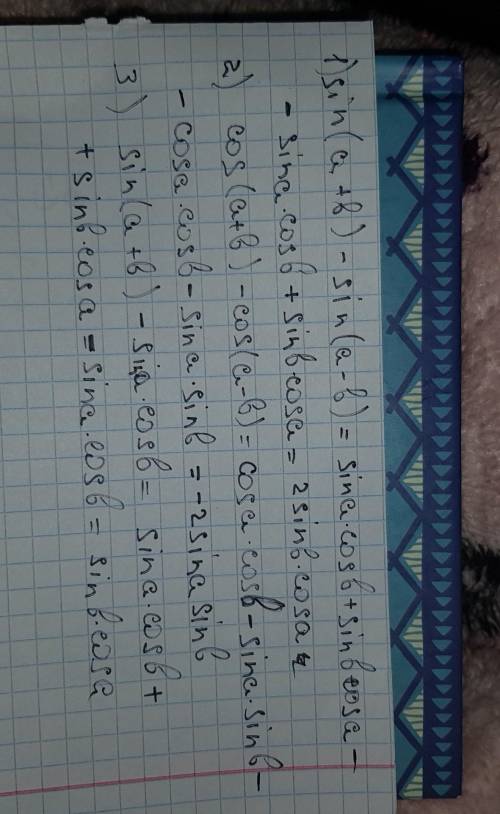 1) sin(a+b) - sin(a-b) = sina·cosb + sinb·cosa -
- sina·cosb + sinb·cosa = 2sinb·cosa
2) cos(a+b) - cos(a-b) = cosa·cosb - sina·sinb -
- cosa·cosb - sina·sinb = -2sina sinb
3) sin(a+b) - sina·cosb = sina·cosb +
+ sinb·cosa - sina·cosb = sinb·cosa